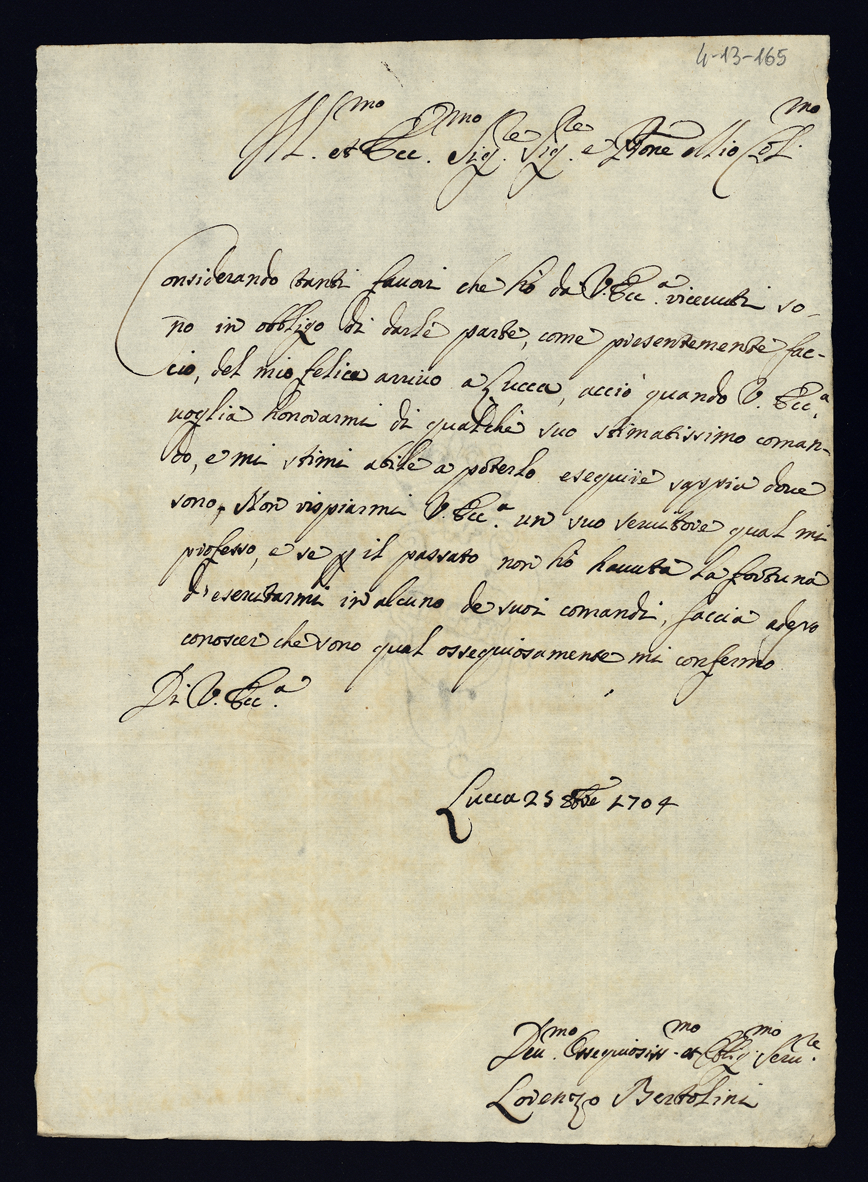 4-13-165
Ill.mo et Ecc.mo Sig.re Sig.re e Prone Mio Col.mo
Considerando tanti fauori che hò da V. Ecc.a riceuuti so-
no in obbligo di darle parte, come presentemente fac-
cio, del mio felice arriuo a Lucca, acciò quando V. Ecc.a
uoglia honorarmi di qualche suo stimatissimo coman-
do, e mi stimi abile a poterlo eseguire sappia doue
sono, Non rispiarmi V. Ecc.a un suo seruitore qual mi
professo, e se p il passato non hò hauuta la fortuna
d'esercitarmi in alcuno de suoi comandi, faccia adesso
conoscer che sono qual ossequiosamente mi confermo
Di V. Ecc.a
Lucca 25 8bre 1704
Deu.mo Ossequiosiss.mo et Oblig.mo Seru.re
Lorenzo Bertolini